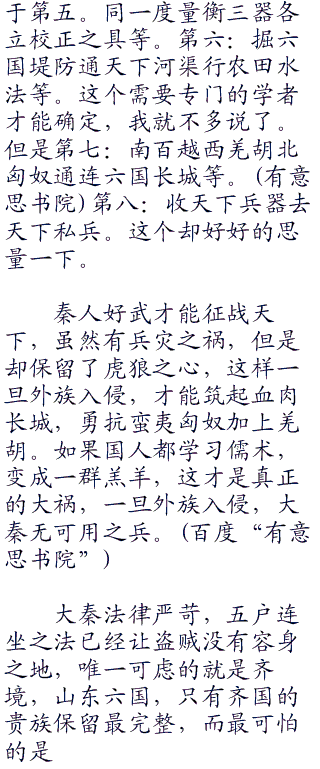 于第五。同一度量衡三器各
立校正之具等。第六：掘六
国堤防通天下河渠行农田水
法等。这个需要专门的学者
才能确定，我就不多说了。
但是第七：南百越西羌胡北
匈奴通连六国长城等。(有意
思书院)第八：收天下兵器去
天下私兵。这个却好好的思
量一下。
秦人好武才能征战天
下，虽然有兵灾之祸，但是
却保留了虎狼之心，这样一
旦外族入侵，才能筑起血肉
长城，勇抗蛮夷匈奴加上羌
胡。如果国人都学习儒术，
变成一群羔羊，这才是真正
的大祸，一旦外族入侵，大
秦无可用之兵。(百度“有意
思书院”)
大秦法律严苛，五户连
坐之法已经让盗贼没有容身
之地，唯一可虑的就是齐
境，山东六国，只有齐国的
贵族保留最完整，而最可怕
的是